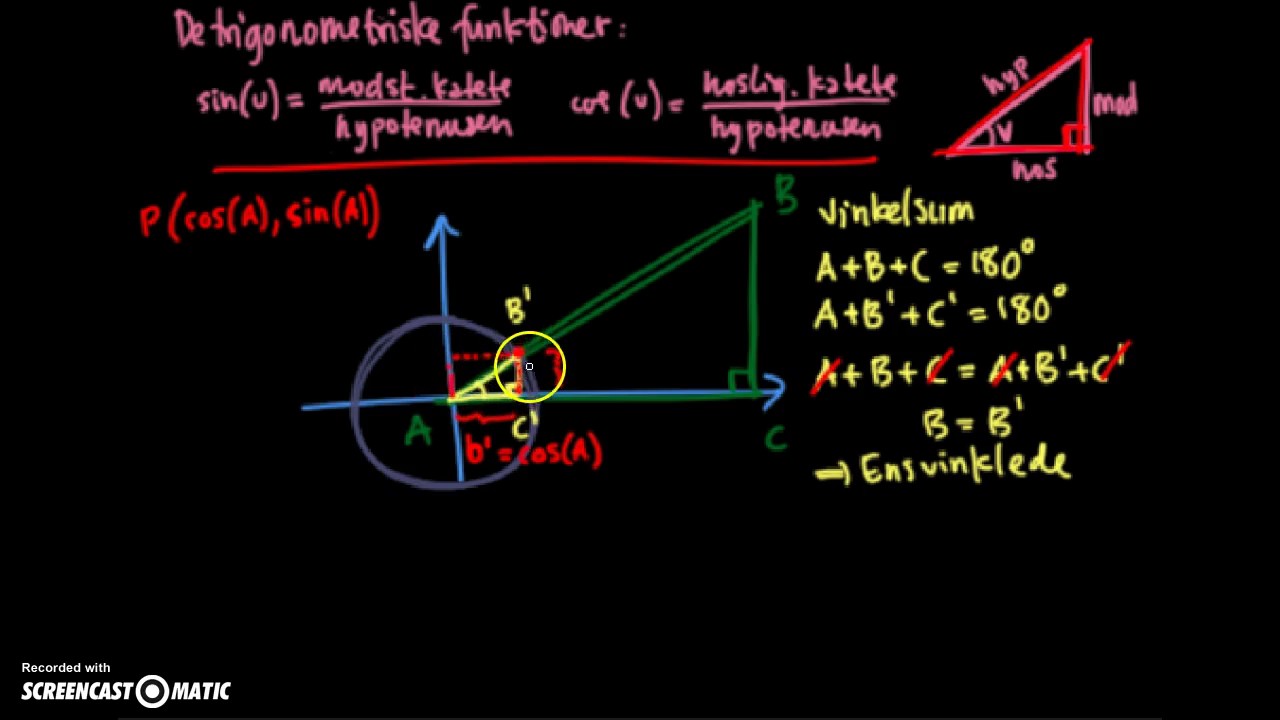 De trigonometriske funktioner:
sin(v) = modst. katete / hypotenusen
cos(v) = hoslig. katete / hypotenusen
hyp
v
mod
hos
P(cos(A), sin(A))
B
B'
A
C'
C
b' = cos(A)
Vinkelsum
A+B+C = 180°
A+B'+C' = 180°
A+B+C = A+B'+C'
B = B'
⇒ Ensvinklede
Recorded with
SCREENCAST O MATIC